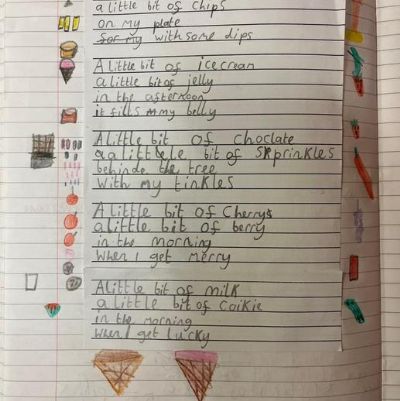 a little bit of chips
on my plate
for my with some dips
A little bit of icecream
a little bit of jelly
in the afternoon
it fills my belly
A little bit of choclate
a a little bit of sprinkles
behinde the tree
with my tinkles
A little bit of Cherrys
a little bit of berry
in the morning
when I get merry
A little bit of milk
a little bit of Coikie
in the morning
when I get lucky